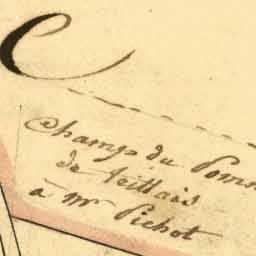 C
Champs du Pomm
de teillais
à Mr Pichot